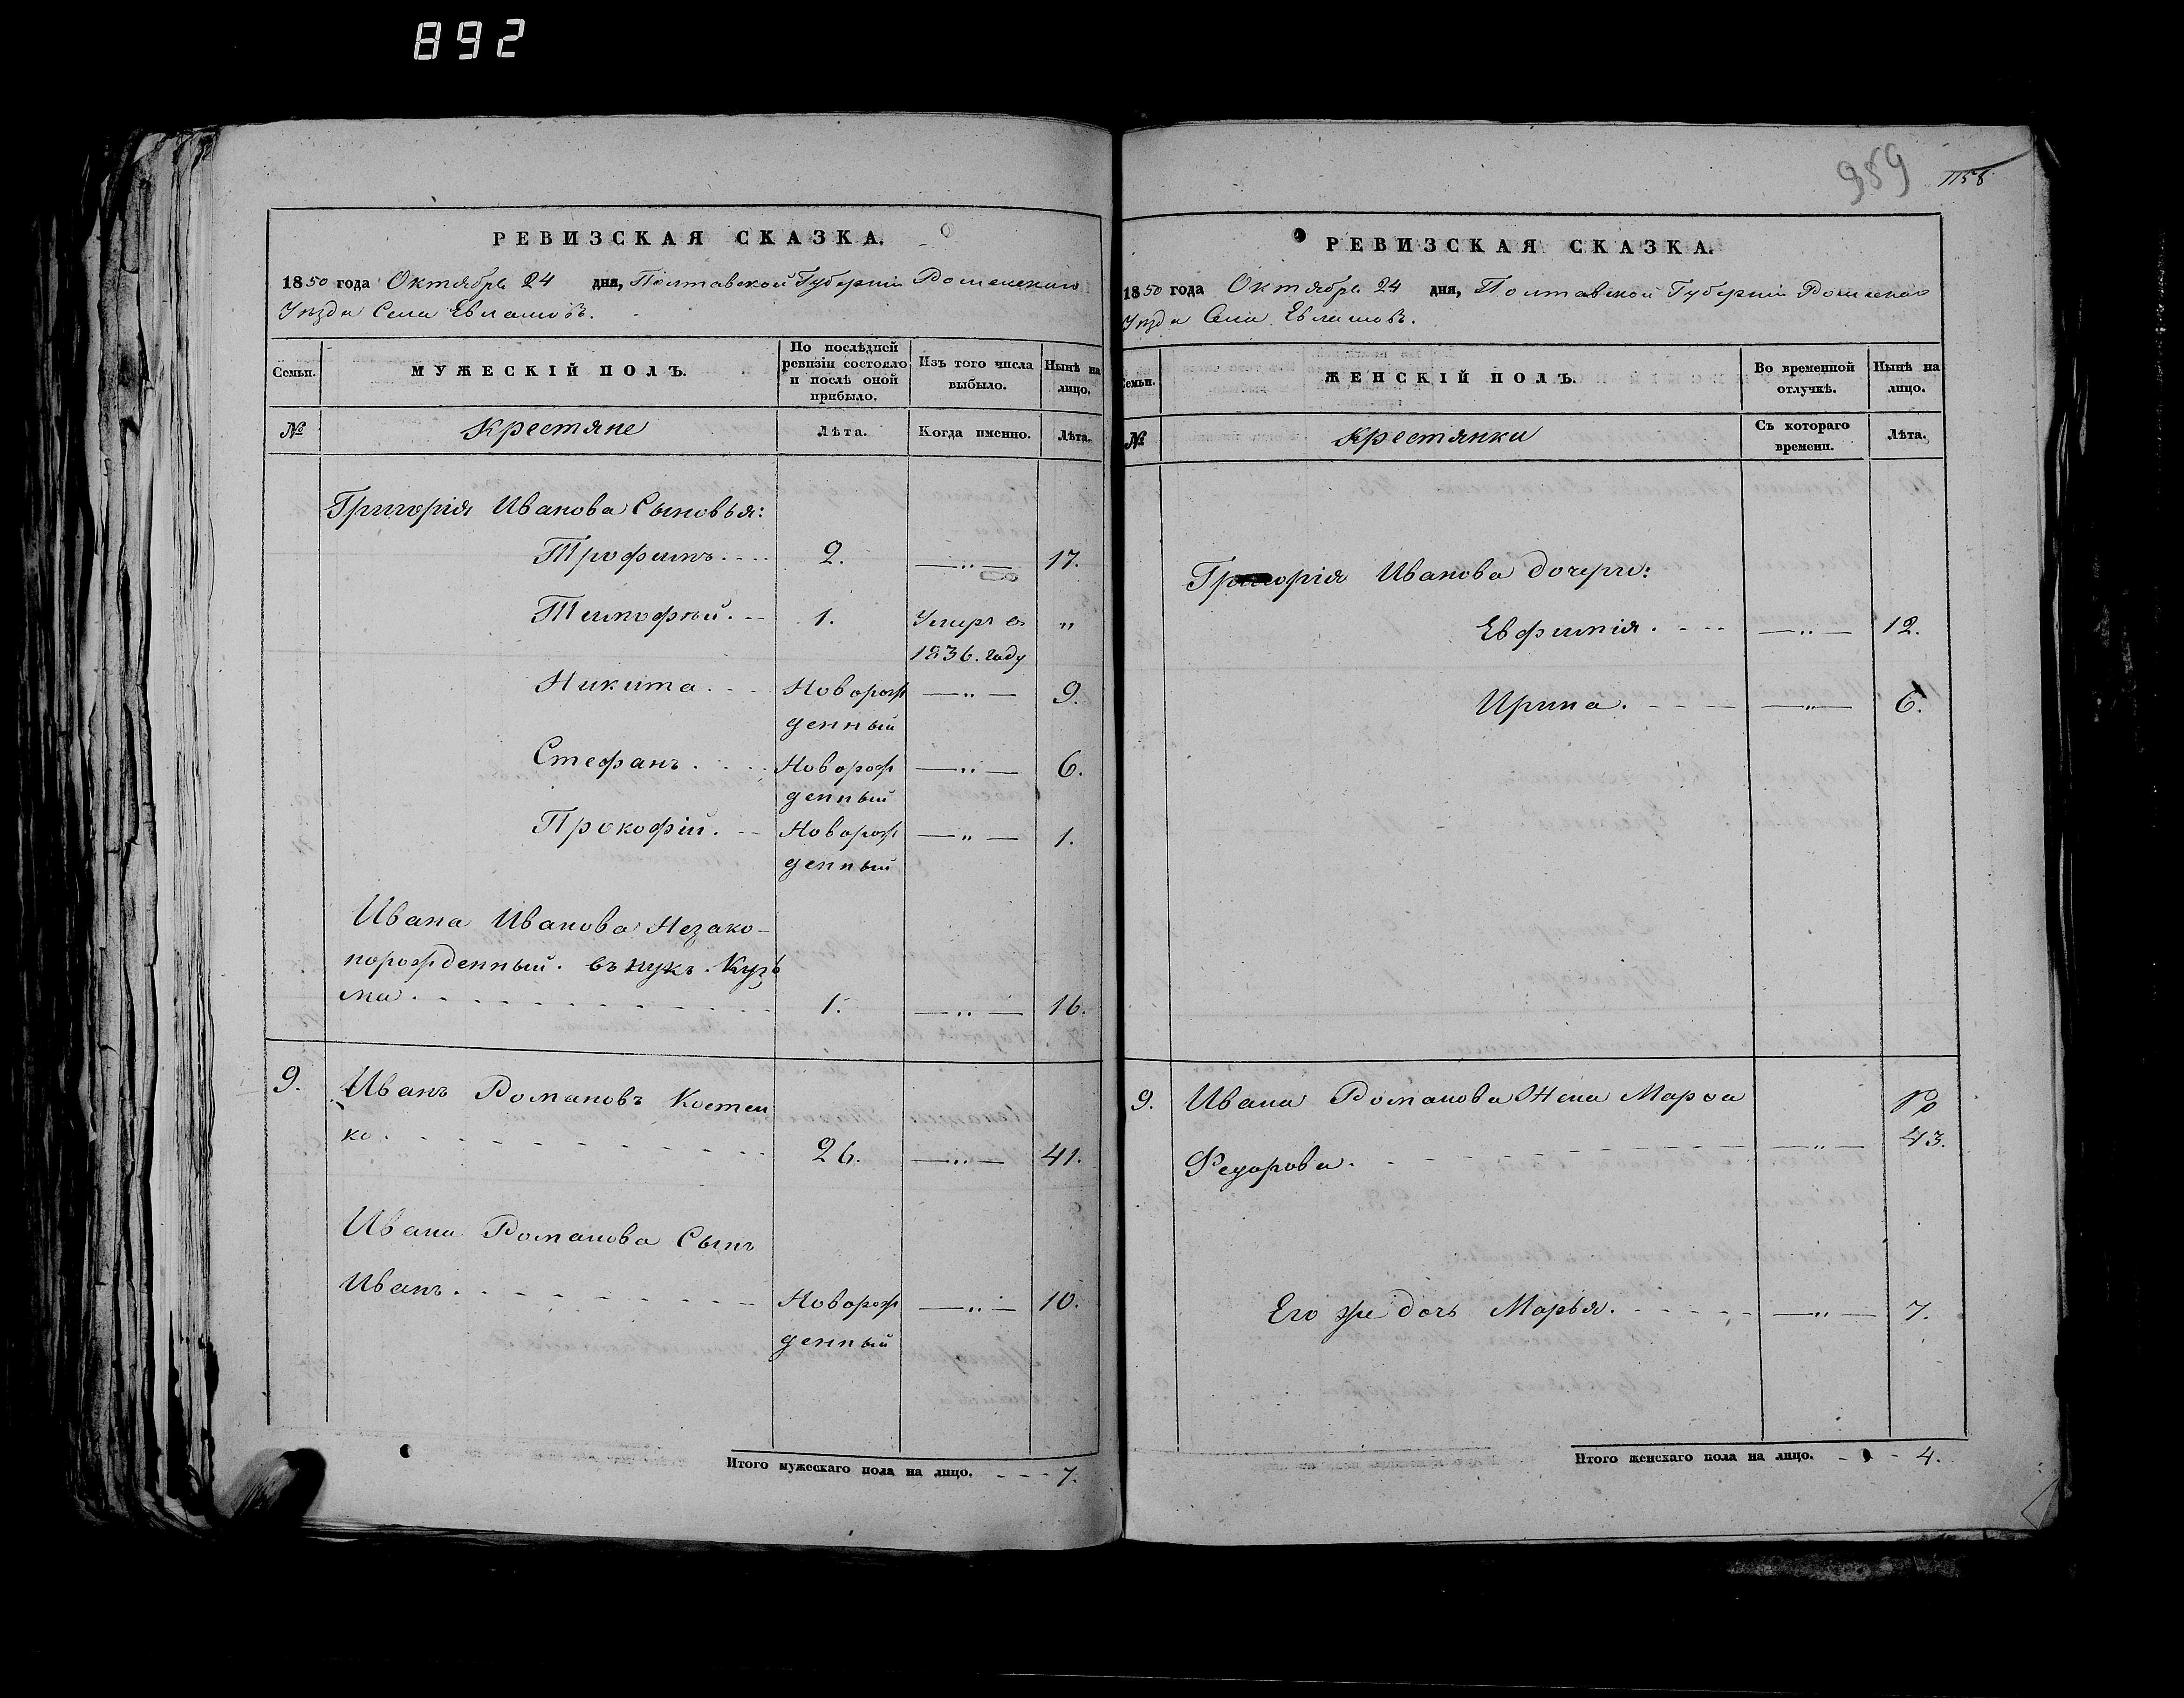 892
959
1158
РЕВИЗСКАЯ СКАЗКА.
1850 года Октября 24 дня, Полтавской Губерніи Роменскаго
Уезда Села Евлашовъ.
Семьи.
МУЖЕСКІЙ ПОЛЪ.
По послѣдней
ревизіи состояло
и послѣ оной
прибыло.
Изъ того числа
выбыло.
Нынѣ на
лицо.
№
Крестяне
Лѣта.
Когда именно.
Лѣта.
Григорія Иванова Сыновья:
Трофимъ. 2. —„— 17.
Тимофей. 1. Умеръ въ „
1836. году
Никита.Новорож —„— 9.
денный
Стефанъ.Новорож —„— 6.
денный
Прокофій.Новорож —„— 1.
денный
Ивана Иванова Незако-
норожденный. внукъ. Кузь
ма. 1. —„— 16.
9. Иванъ Романовъ Костен
ко. 26. —„— 41.
Ивана Романова Сынъ
Иванъ.Новорож —„— 10.
денный
Итого мужескаго пола на лицо. - - - 7.
РЕВИЗСКАЯ СКАЗКА.
1850 года Октября 24 дня, Полтавской Губерніи Роменскаго
Уезда Села Евлашовъ.
Семьи.
ЖЕНСКІЙ ПОЛЪ.
Во временной
отлучкѣ.
Нынѣ на
лицо.
№
Крестянки
Съ котораго
времени.
Лѣта.
Григорія Иванова дочери:
Евфимія. —„— 12.
Ирина. —„— 6.
9. Ивана Романова Жена Марфа
Федорова. —„— 43.
Его же дочь Марья. —„— 7.
Итого женскаго пола на лицо. - - - 4.